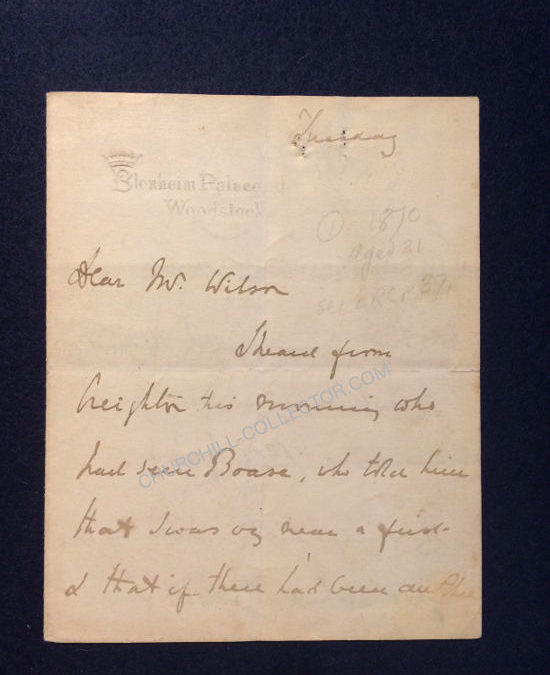 Tuesday
Blenheim Palace
Woodstock
① 1870
Aged 21
see
Dear Mr. Wilson
I heard from
Creighton this morning who
had seen Boase, who told him
that I was vy near a first
& that if there had been another
CHURCHILL-COLLECTOR.COM